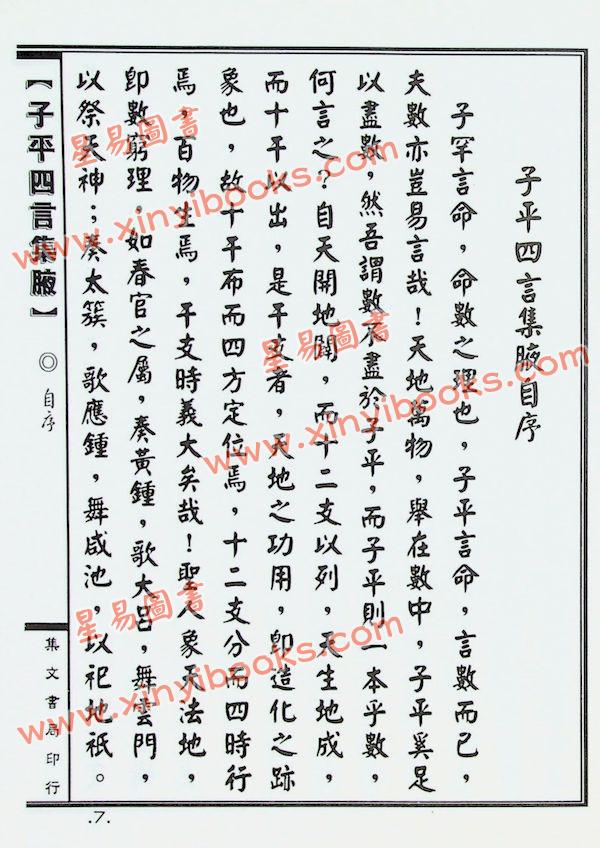 子平四言集腋自序
子罕言命，命數之理也，子平言命，言數而已，
夫數亦豈易言哉！天地萬物，舉在數中，子平奚足
以盡數，然吾謂數不盡於子平，而子平則一本乎數，
何言之？自天開地闢，而十二支以列，天生地成，
而十干以出，是干支者，天地之功用，即造化之跡
象也，故十干布而四方定位焉，十二支分而四時行
焉，百物生焉，干支時義大矣哉！聖人象天法地，
即數窮理。如春官之屬，奏黃鍾，歌大呂，舞雲門，
以祭天神；奏太簇，歌應鍾，舞咸池，以祀地祇。
【子平四言集腋】
◎自序
集文書局印行
.7.
星易圖書
www.xinyibooks.com
星易圖書
www.xinyibooks.com
星易圖書
www.xinyibooks.com